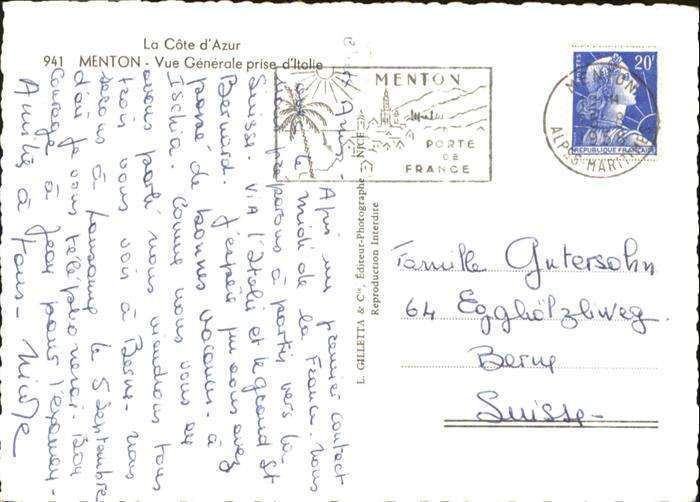 La Côte d'Azur
941 MENTON - Vue Générale prise d'Italie
MENTON
PORTE
DE
FRANCE
20F
POSTES
REPUBLIQUE FRANÇAISE
MENTON
ALPES-MARITIMES
L. GILLETTA & Cie, Éditeur-Photographe - NICE
Reproduction Interdire
Famille Gutersohn
64 Eggholzliweg.
Berne
Suisse
Après un premier contact
avec le Midi de la France nous
nous préparons à partir vers la
Suisse. via l'Italie et le grand St
Bernard. J'espère que vous avez
passé de bonnes vacances à
Ischia. Comme nous vous en
avons parlé nous viendrons tous
trois vous voir à Berne. Nous
serons à Lausanne le 5 Septembre
d'où je vous téléphonerai. Bon
Courage à Jean pour l'examen.
Amitiés à tous - Nicole